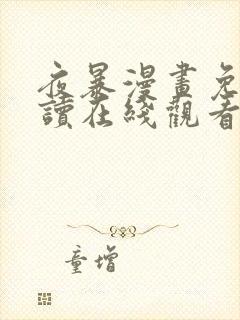 夜暴漫畫免
讀在綫觀看
童增